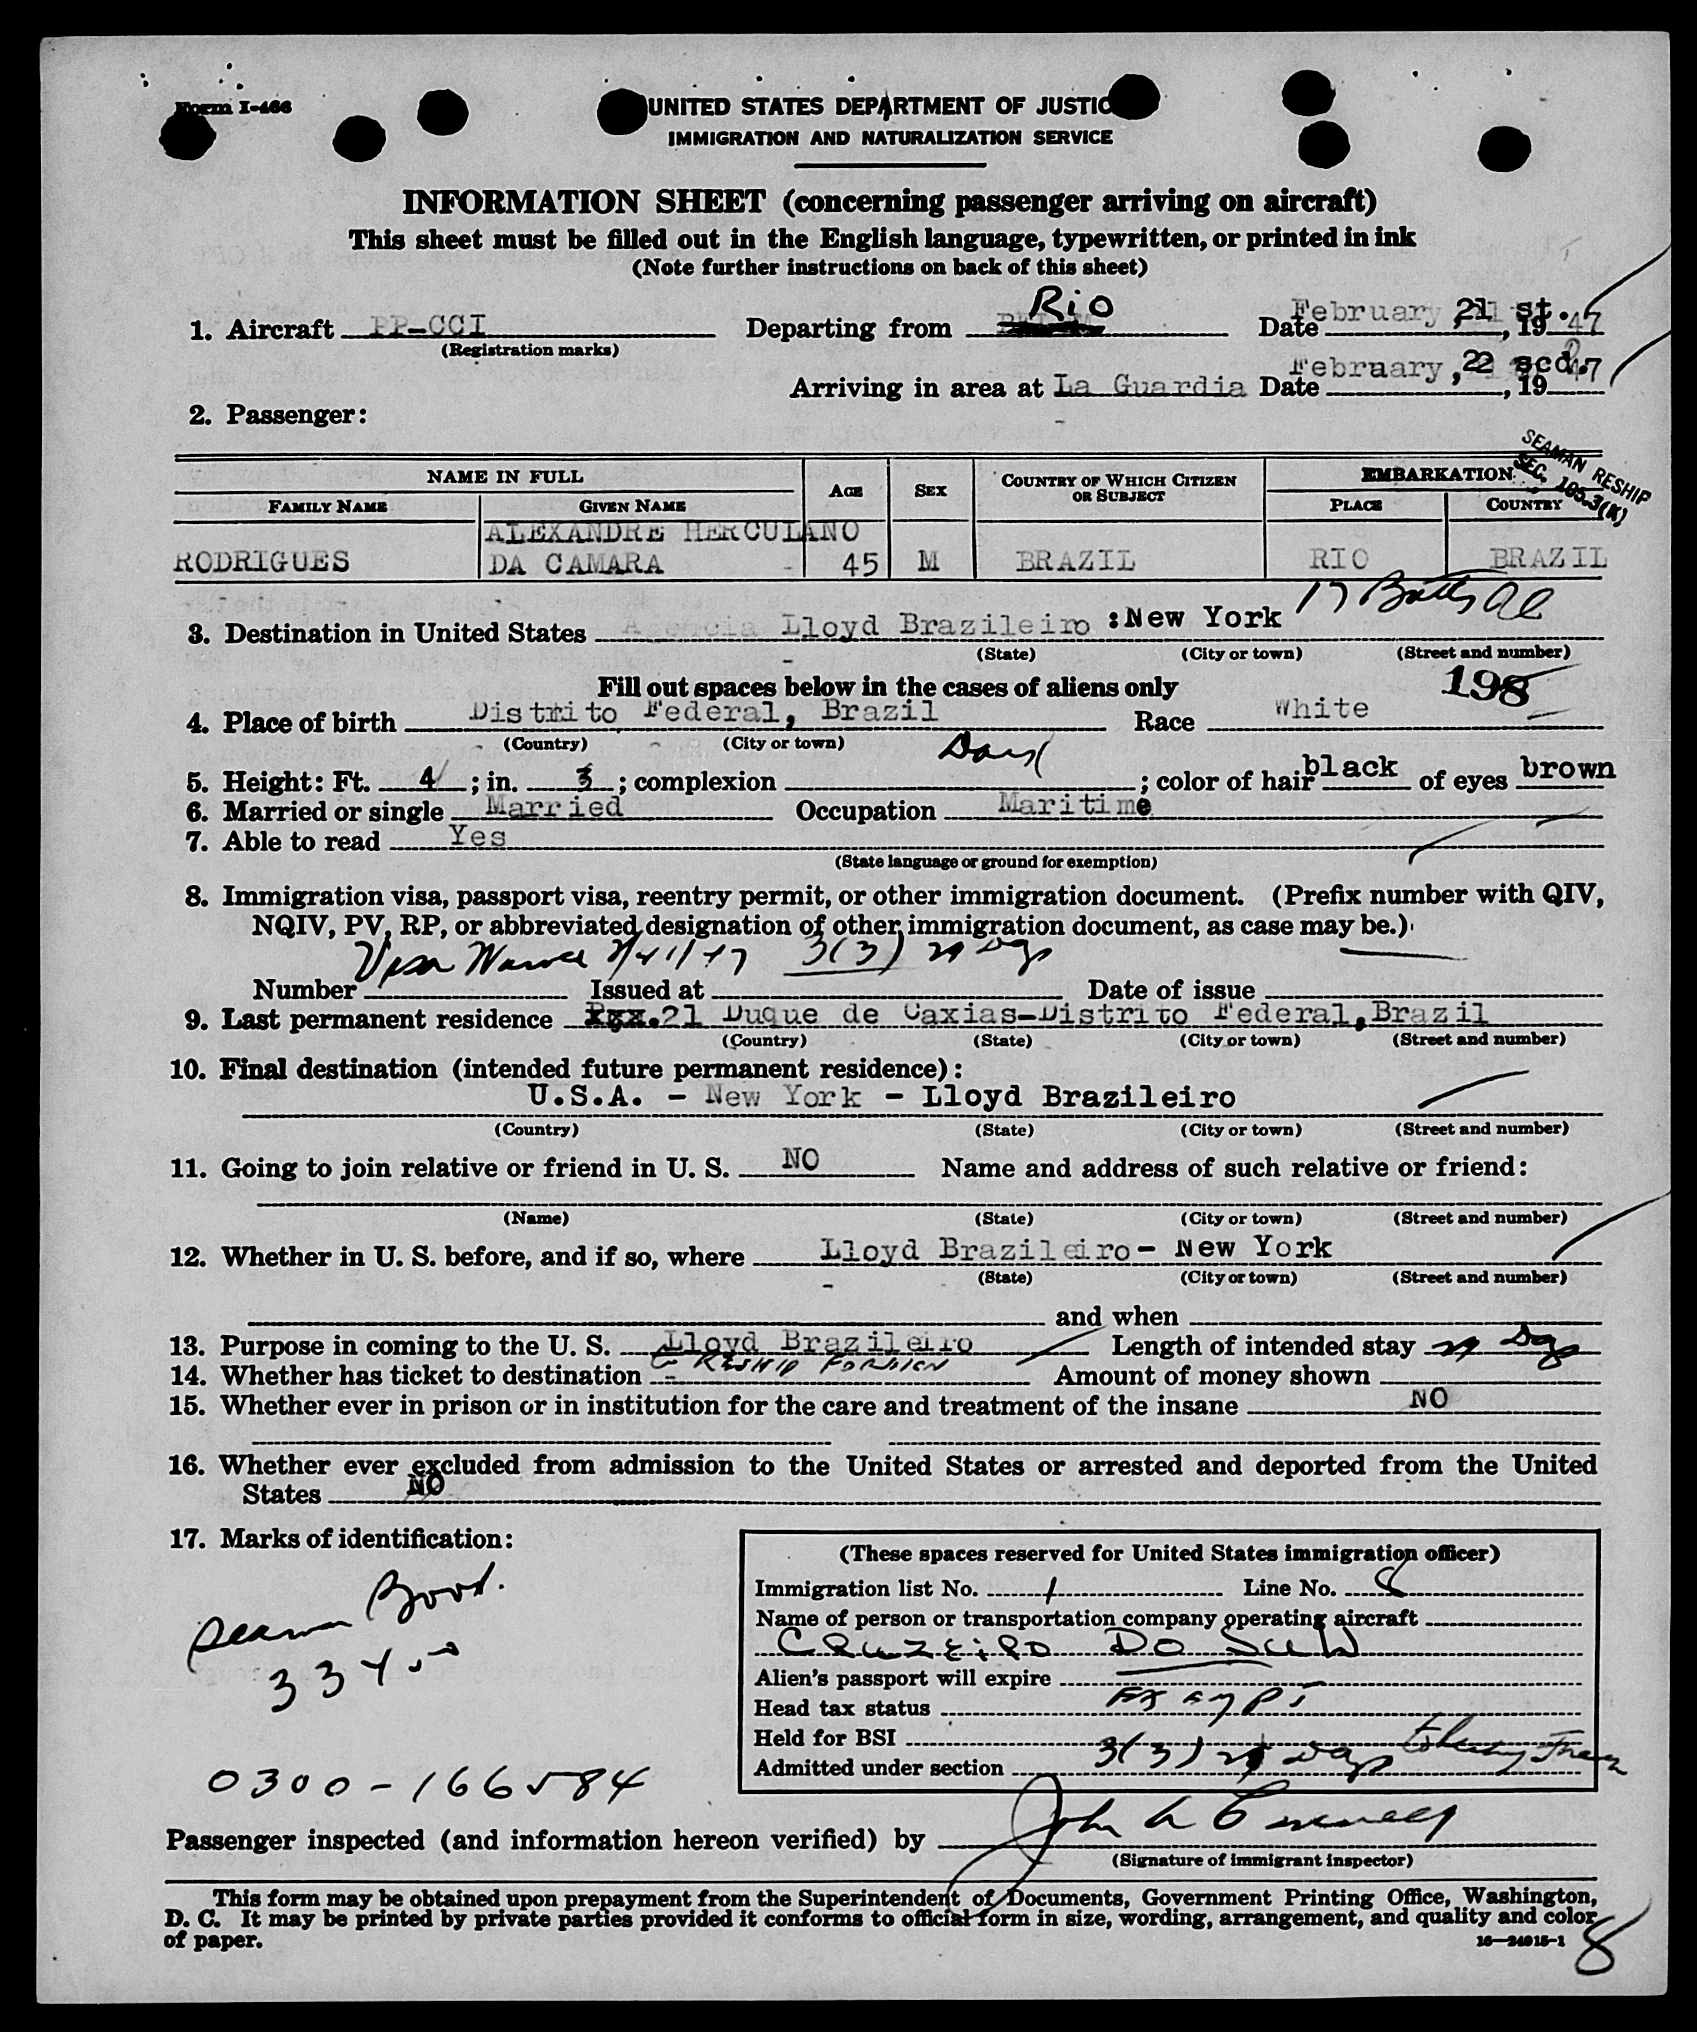 Form I-466
UNITED STATES DEPARTMENT OF JUSTIC
IMMIGRATION AND NATURALIZATION SERVICE
INFORMATION SHEET (concerning passenger arriving on aircraft)
This sheet must be filled out in the English language, typewritten, or printed in ink
(Note further instructions on back of this sheet)
1. Aircraft PP-CCI Departing from Rio Date February, 21 st., 1947
(Registration marks)
Arriving in area at La Guardia Date February, 22 scd., 1947
2. Passenger:
SEAMAN RESHIP
SEC. 105.3(K)
NAME IN FULL AGE SEX COUNTRY OF WHICH CITIZEN OR SUBJECT EMBARKATION
FAMILY NAME GIVEN NAME PLACE COUNTRY
ALEXANDRE HERCULANO
RODRIGUES DA CAMARA - 45 M BRAZIL RIO BRAZIL
3. Destination in United States Agencia Lloyd Brazileiro :New York 17 Batty Pl
(State) (City or town) (Street and number)
Fill out spaces below in the cases of aliens only 198
4. Place of birth Distrito Federal, Brazil Race White
(Country) (City or town)
5. Height: Ft. 4 ; in. 3 ; complexion Dark ; color of hair black of eyes brown
6. Married or single Married Occupation Maritime
7. Able to read Yes
(State language or ground for exemption)
8. Immigration visa, passport visa, reentry permit, or other immigration document. (Prefix number with QIV,
NQIV, PV, RP, or abbreviated designation of other immigration document, as case may be.)
Visa 3(3) 29 Days
Number Issued at Date of issue
9. Last permanent residence 21 Duque de Caxias-Distrito Federal, Brazil
(Country) (State) (City or town) (Street and number)
10. Final destination (intended future permanent residence):
U.S.A. - New York - Lloyd Brazileiro
(Country) (State) (City or town) (Street and number)
11. Going to join relative or friend in U. S. NO Name and address of such relative or friend:
(Name) (State) (City or town) (Street and number)
12. Whether in U. S. before, and if so, where Lloyd Brazileiro- New York
(State) (City or town) (Street and number)
and when
13. Purpose in coming to the U. S. Lloyd Brazileiro Length of intended stay 29 Days
RESHIP FOREIGN
14. Whether has ticket to destination - Amount of money shown
15. Whether ever in prison or in institution for the care and treatment of the insane NO
16. Whether ever excluded from admission to the United States or arrested and deported from the United
States NO
17. Marks of identification:
Seaman Book.
0300-166584
(These spaces reserved for United States immigration officer)
Immigration list No. 1 Line No. 8
Name of person or transportation company operating aircraft
CRUZEIRO DO SUL
Alien's passport will expire
Head tax status Exempt
Held for BSI
Admitted under section 3(3) 29 Days
Passenger inspected (and information hereon verified) by John
(Signature of immigrant inspector)
This form may be obtained upon prepayment from the Superintendent of Documents, Government Printing Office, Washington,
D. C. It may be printed by private parties provided it conforms to official form in size, wording, arrangement, and quality and color
of paper.
16—24915-1
8